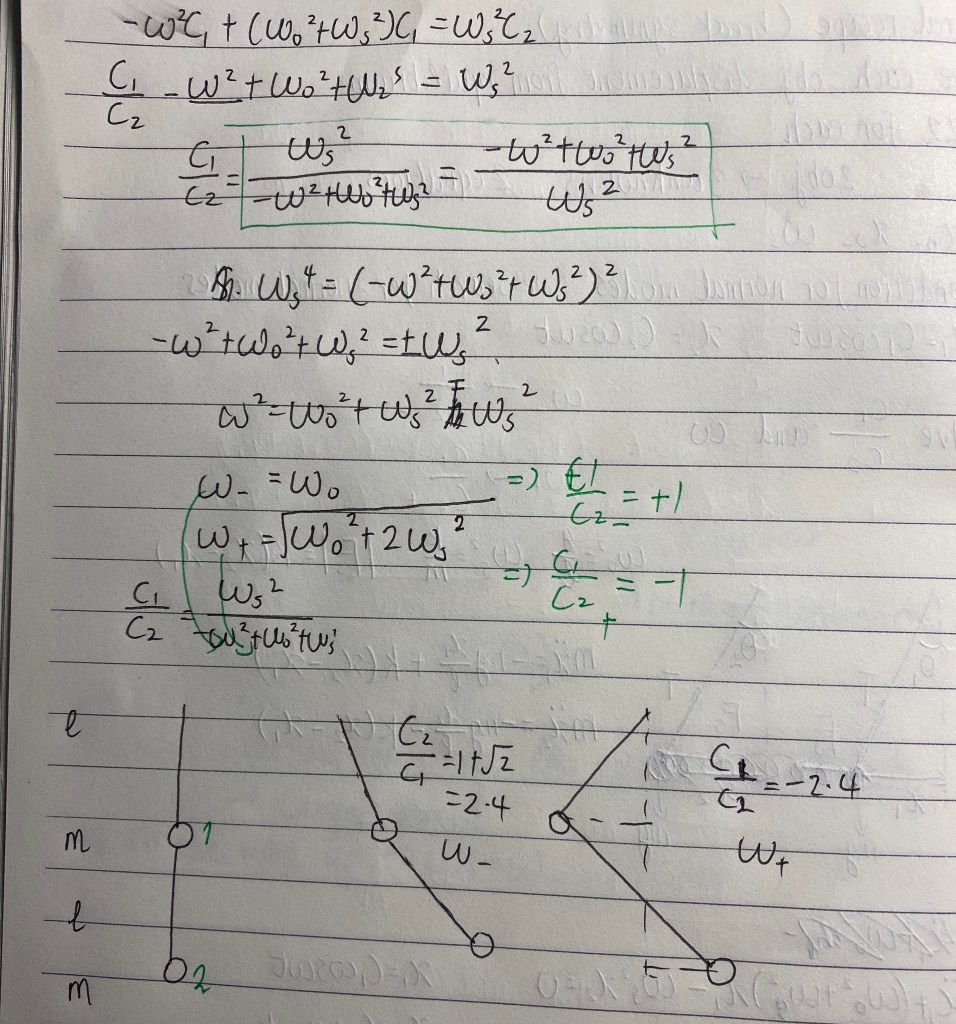 -ω²C₁ + (ω₀²+ωₛ²)C₁ = ωₛ²C₂
C₁/C₂ -ω²+ω₀²+ω₂ˢ = ωₛ²
C₁/C₂ = ωₛ²/(-ω²+ω₀²+ωₛ²) = (-ω²+ω₀²+ωₛ²)/ωₛ²
ωₛ⁴ = (-ω²+ω₀²+ωₛ²)²
-ω²+ω₀²+ωₛ² = ±ωₛ²
ω² = ω₀²+ωₛ² ∓ ωₛ²
ω₋ = ω₀ => C1/C₂₋ = +1
ω₊ = √(ω₀²+2ωₛ²) => C₁/C₂₊ = -1
C₁/C₂ = ωₛ²/(-ω²+ω₀²+ωₛ²)
l
C₂/C₁ = 1+√2
= 2.4
C₁/C₂ = -2.4
m 1 ω₋ ω₊
l
m 2